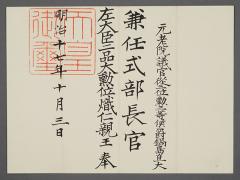 元老院議官從三位勲二等侯爵鍋島直大
兼任式部長官
左大臣二品大勲位熾仁親王 奉
明治十七年十月三日
天皇
御璽